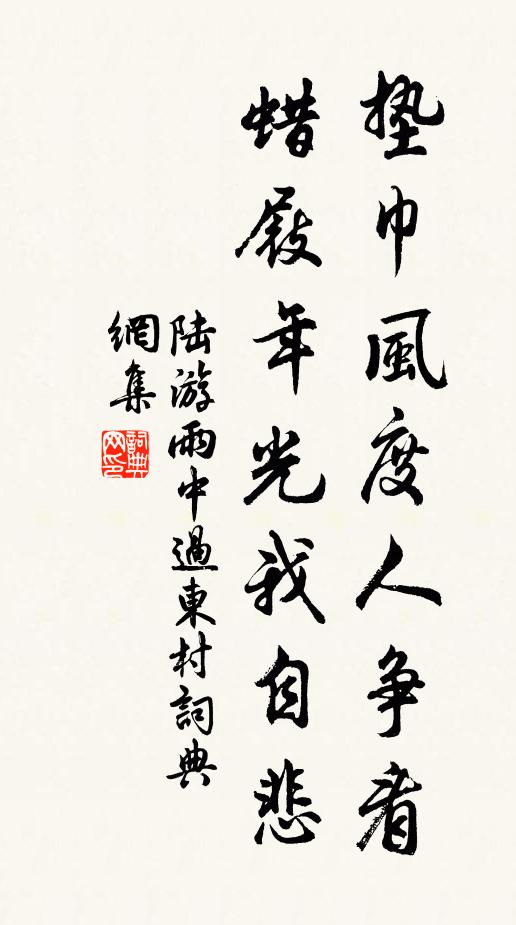 垫巾風度人争看
蜡屐年光我自悲
陆游雨中過東村詞典
網集
詞典
网印